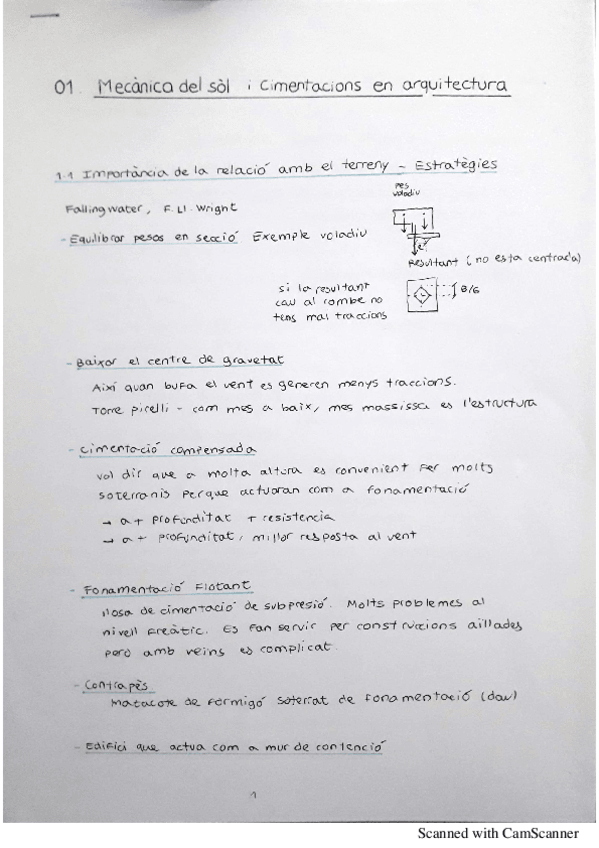 01. Mecànica del sòl i cimentacions en arquitectura
1.1 Importància de la relació amb el terreny - Estratègies
Falling water, F. Ll. Wright
- Equilibrar pesos en secció Exemple voladiu
pes
voladiu
Resultant (no esta centrada)
si la resultant
cau al rombe no
tens mai traccions
B/6
- Baixar el centre de gravetat
Així quan bufa el vent es generen menys traccions.
Torre pirelli - com mes a baix, mes massissa es l'estructura
- cimentació compensada
vol dir que a molta altura es convenient fer molts
soterranis perque actuaran com a fonamentació
→ a + profunditat + resistencia
→ a + profunditat, millor resposta al vent
- Fonamentació Flotant
llosa de cimentació de subpresió. Molts problemes al
nivell freàtic. Es fan servir per construccions aïllades
però amb veins es complicat.
- Contrapès
Matacote de formigó soterrat de fonamentació (dau)
- Edifici que actua com a mur de contenció
1
Scanned with CamScanner